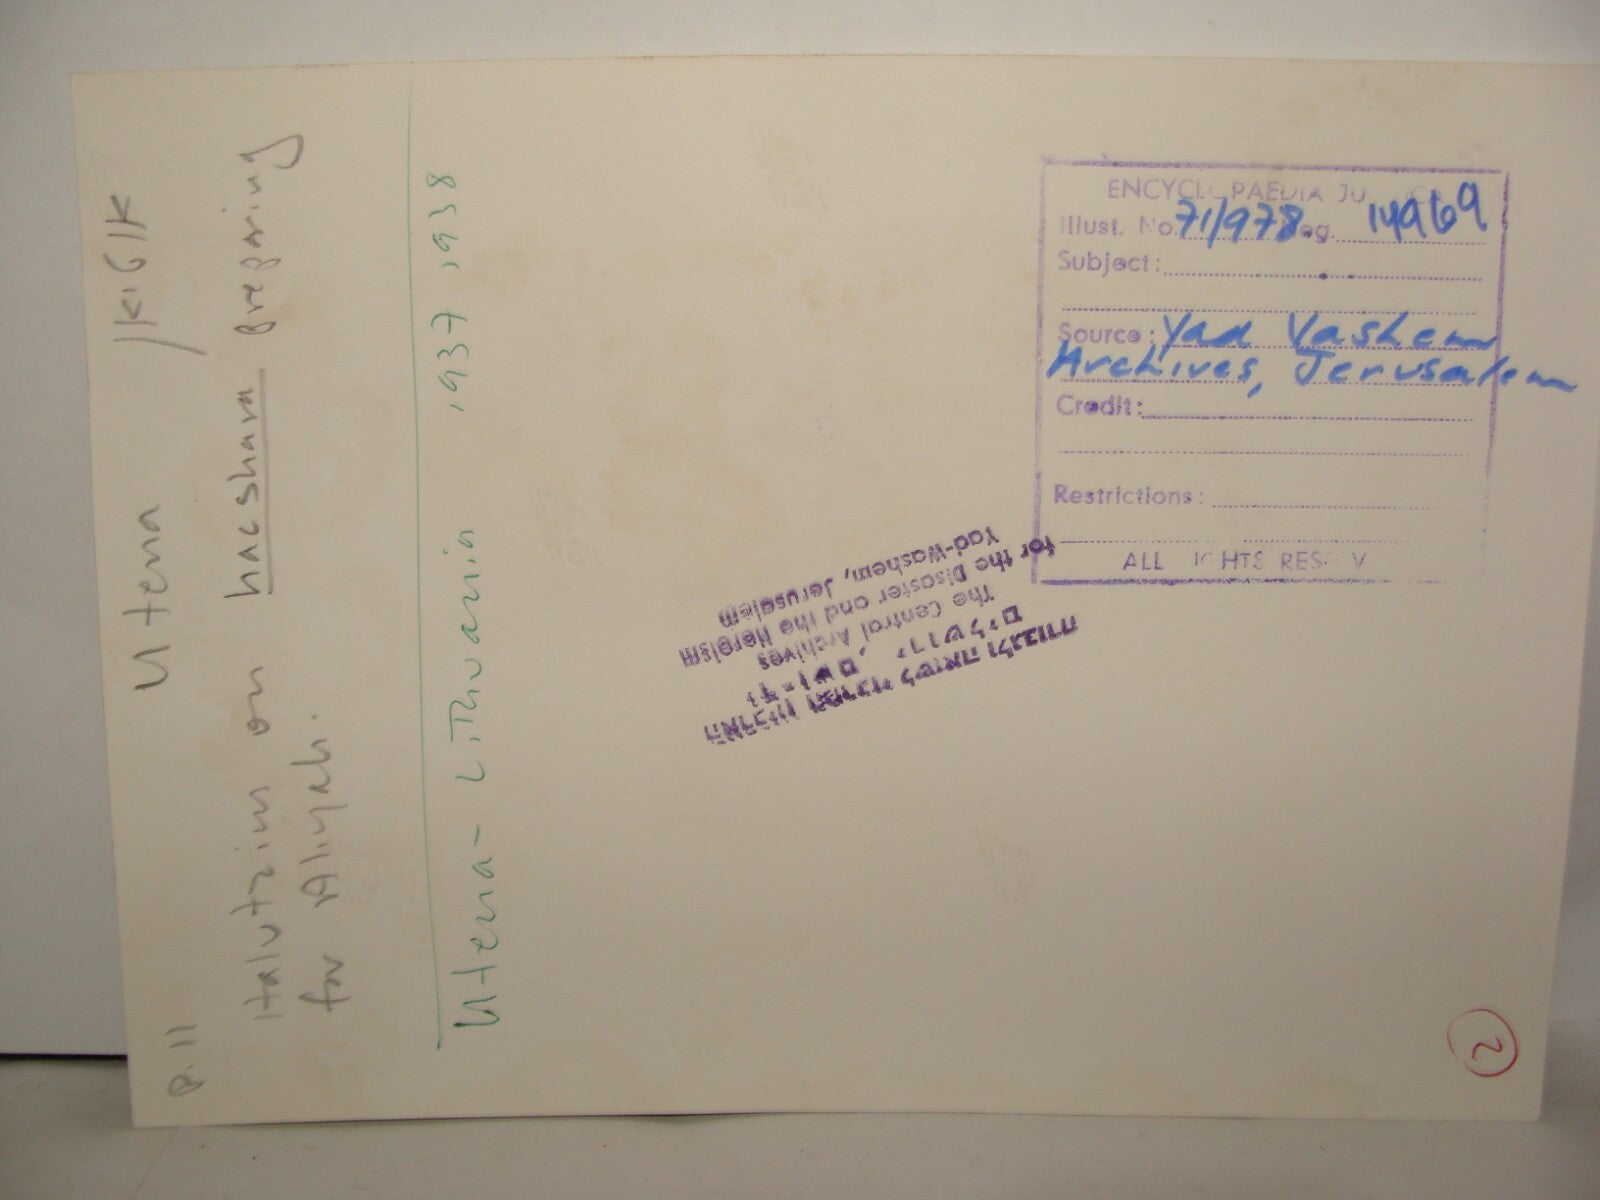 p.11 Utena /K61K
Halutzim on hacshara preparing
for Aliyah.
Utena - Lithuania 1937, 1938
ENCYCLOPAEDIA JU
Illust. No. 71/978 eg. 14969
Subject:
Source: Yad Vashem
Archives, Jerusalem
Credit:
Restrictions:
ALL IGHTS RES V
הארכיון המרכזי לשואה ולגבורה
יד-ושם, ירושלים
The Central Archives
for the Disaster and the Heroism
Yad-Washem, Jerusalem
2